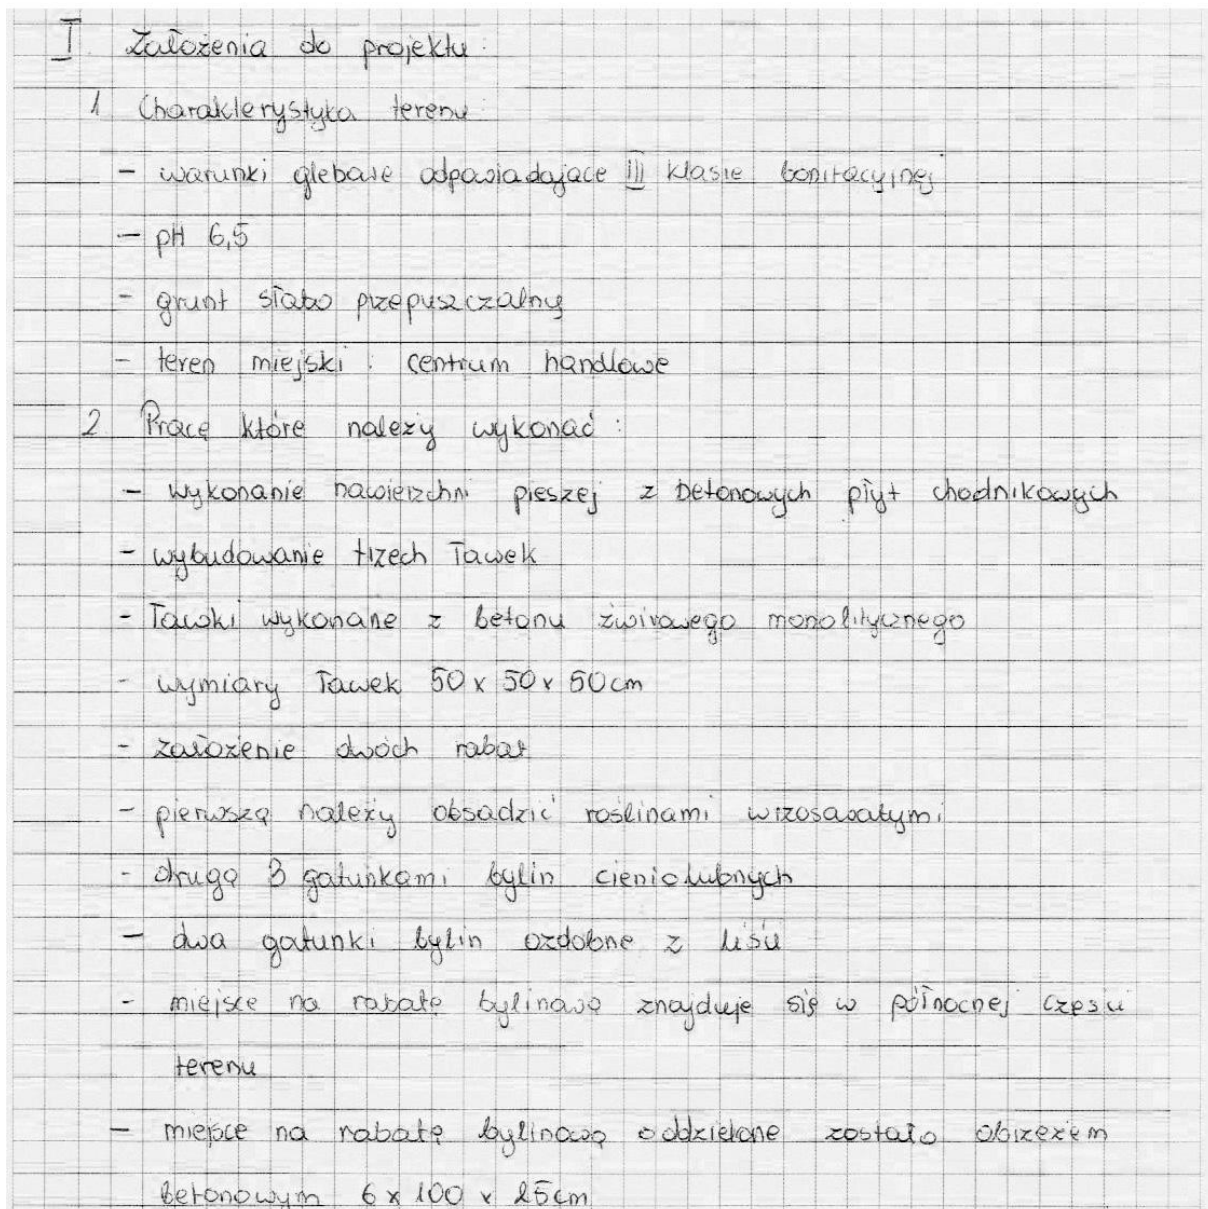 I. Założenia do projektu:
1 Charakterystyka terenu:
- warunki glebowe odpowiadające III klasie bonitacyjnej
- pH 6,5
- grunt słabo przepuszczalny
- teren miejski: centrum handlowe
2 Pracę które należy wykonać:
- wykonanie nawierzchni pieszej z betonowych płyt chodnikowych
- wybudowanie trzech ławek
- ławki wykonane z betonu żwirowego monolitycznego
- wymiary ławek 50 x 50 x 50cm
- założenie dwóch rabat
- pierwszą należy obsadzić roślinami wrzosowatymi
- drugą 3 gatunkami bylin cieniolubnych
- dwa gatunki bylin ozdobne z liści
- miejsce na rabatę bylinową znajduje się w północnej części
terenu
- miejsce na rabatę bylinową oddzielone zostało obrzeżem
betonowym 6 x 100 x 25cm